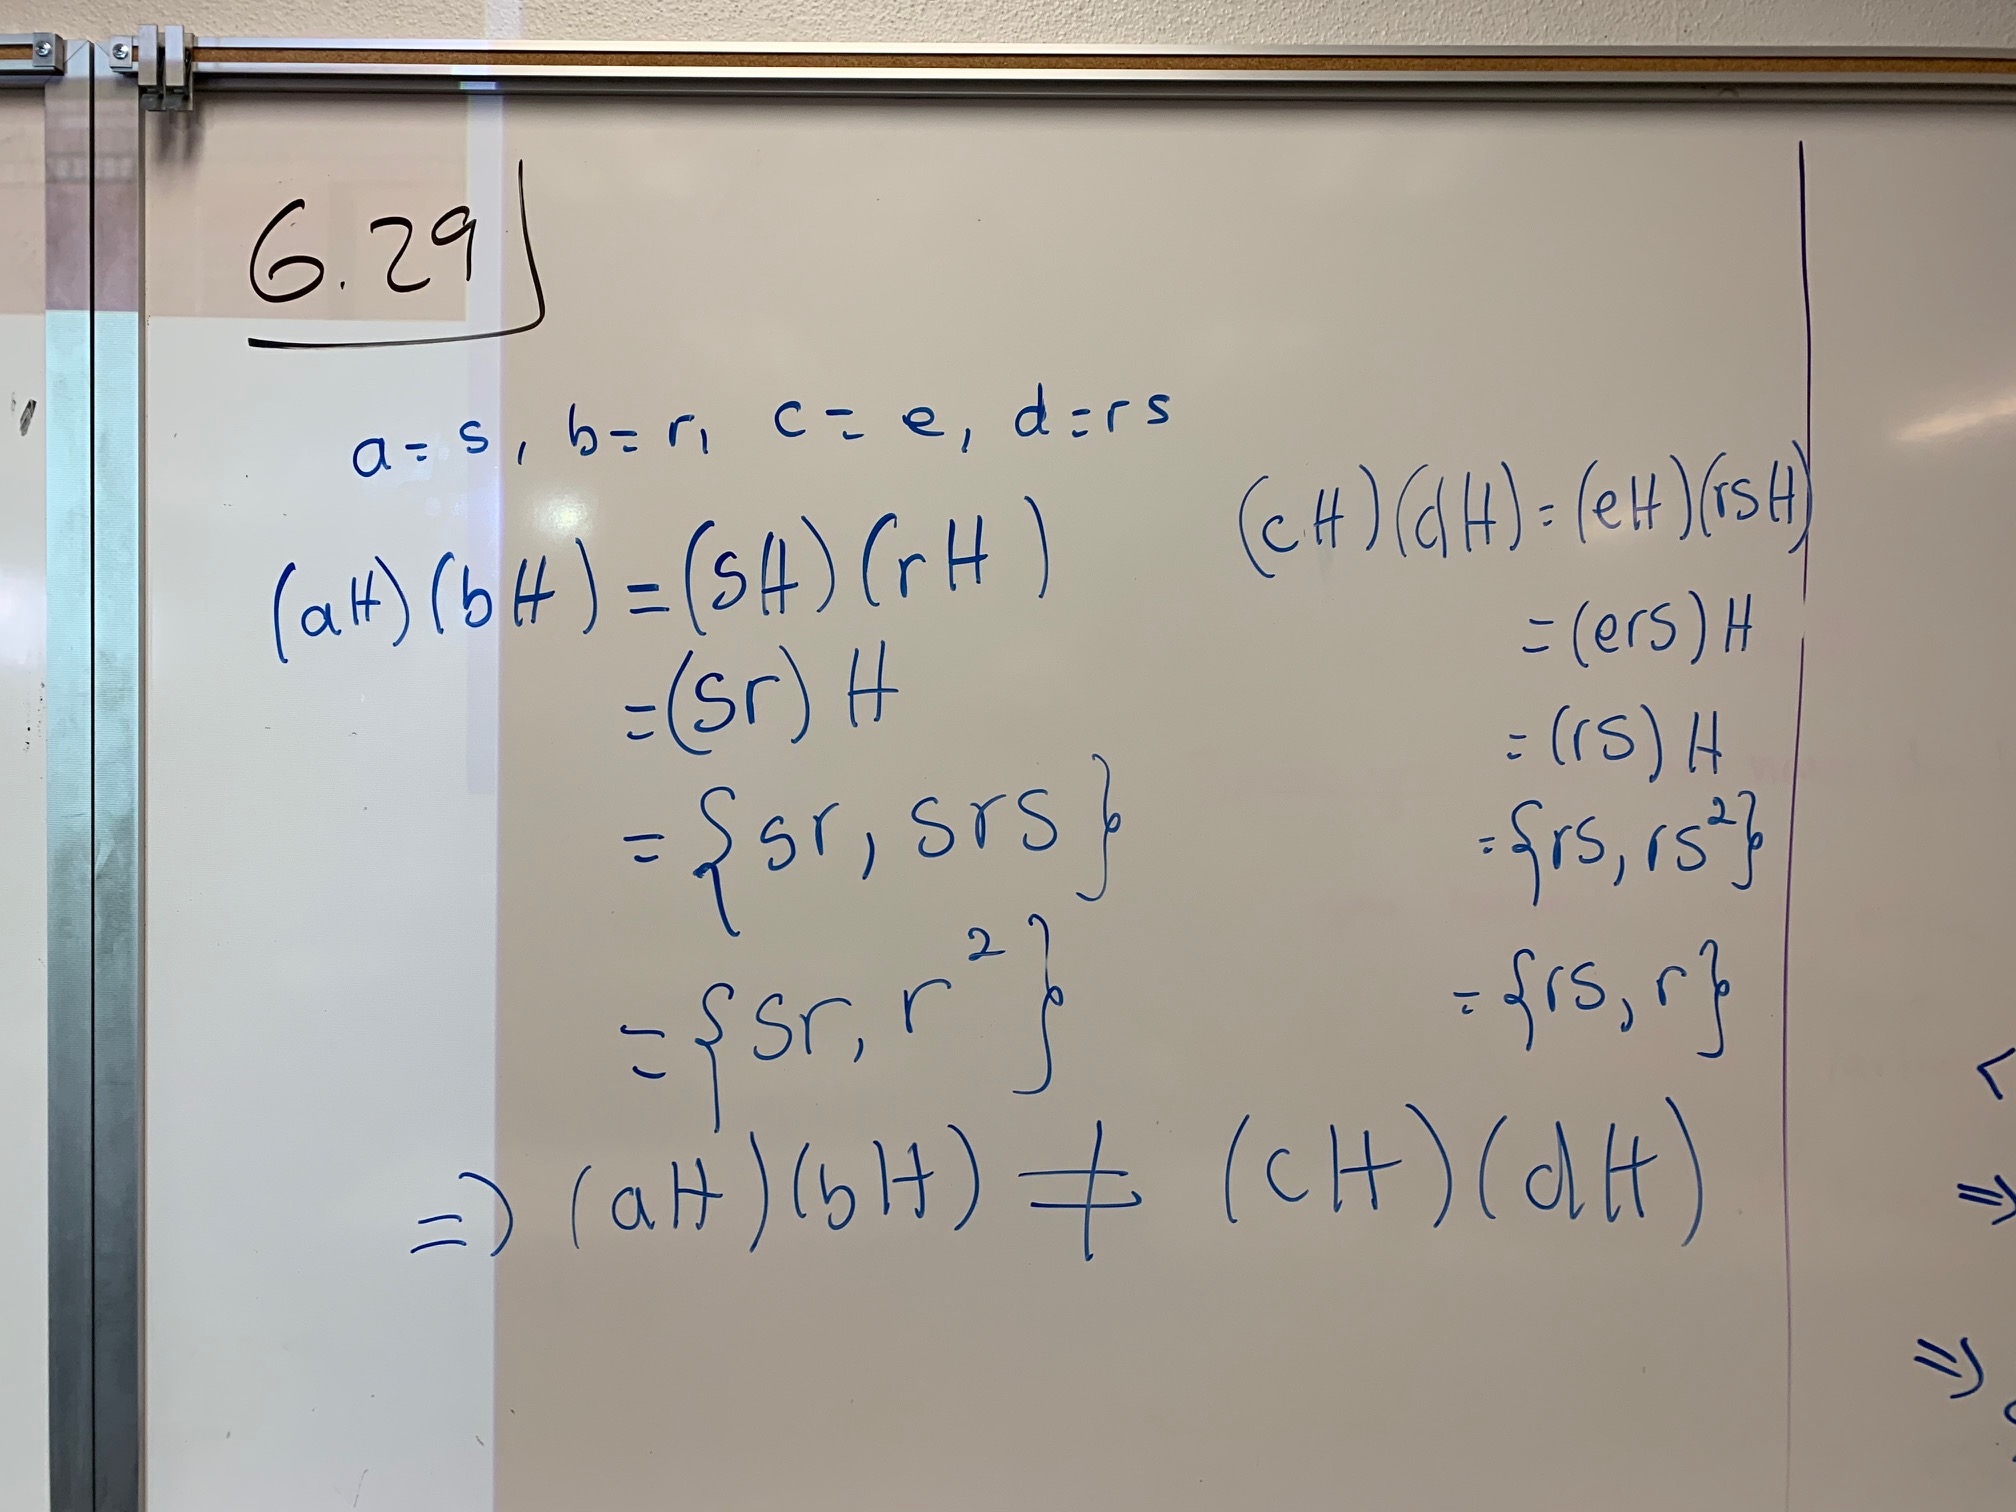 6.29
a = s, b = r, c = e, d = rs
(aH)(bH) = (sH)(rH)
= (sr) H
= {sr, srs}
= {sr, r²}
(cH)(dH) = (eH)(rsH)
= (ers) H
= (rs) H
= {rs, rs²}
= {rs, r}
⇒ (aH)(bH) ≠ (cH)(dH)
<
⇒
⇒